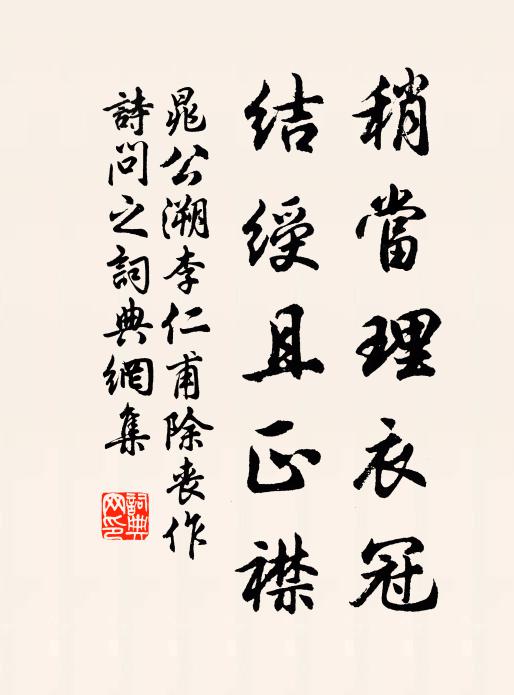 稍當理衣冠
結綬且正襟
晁公溯李仁甫除喪作
詩問之詞典網集
詞典網印